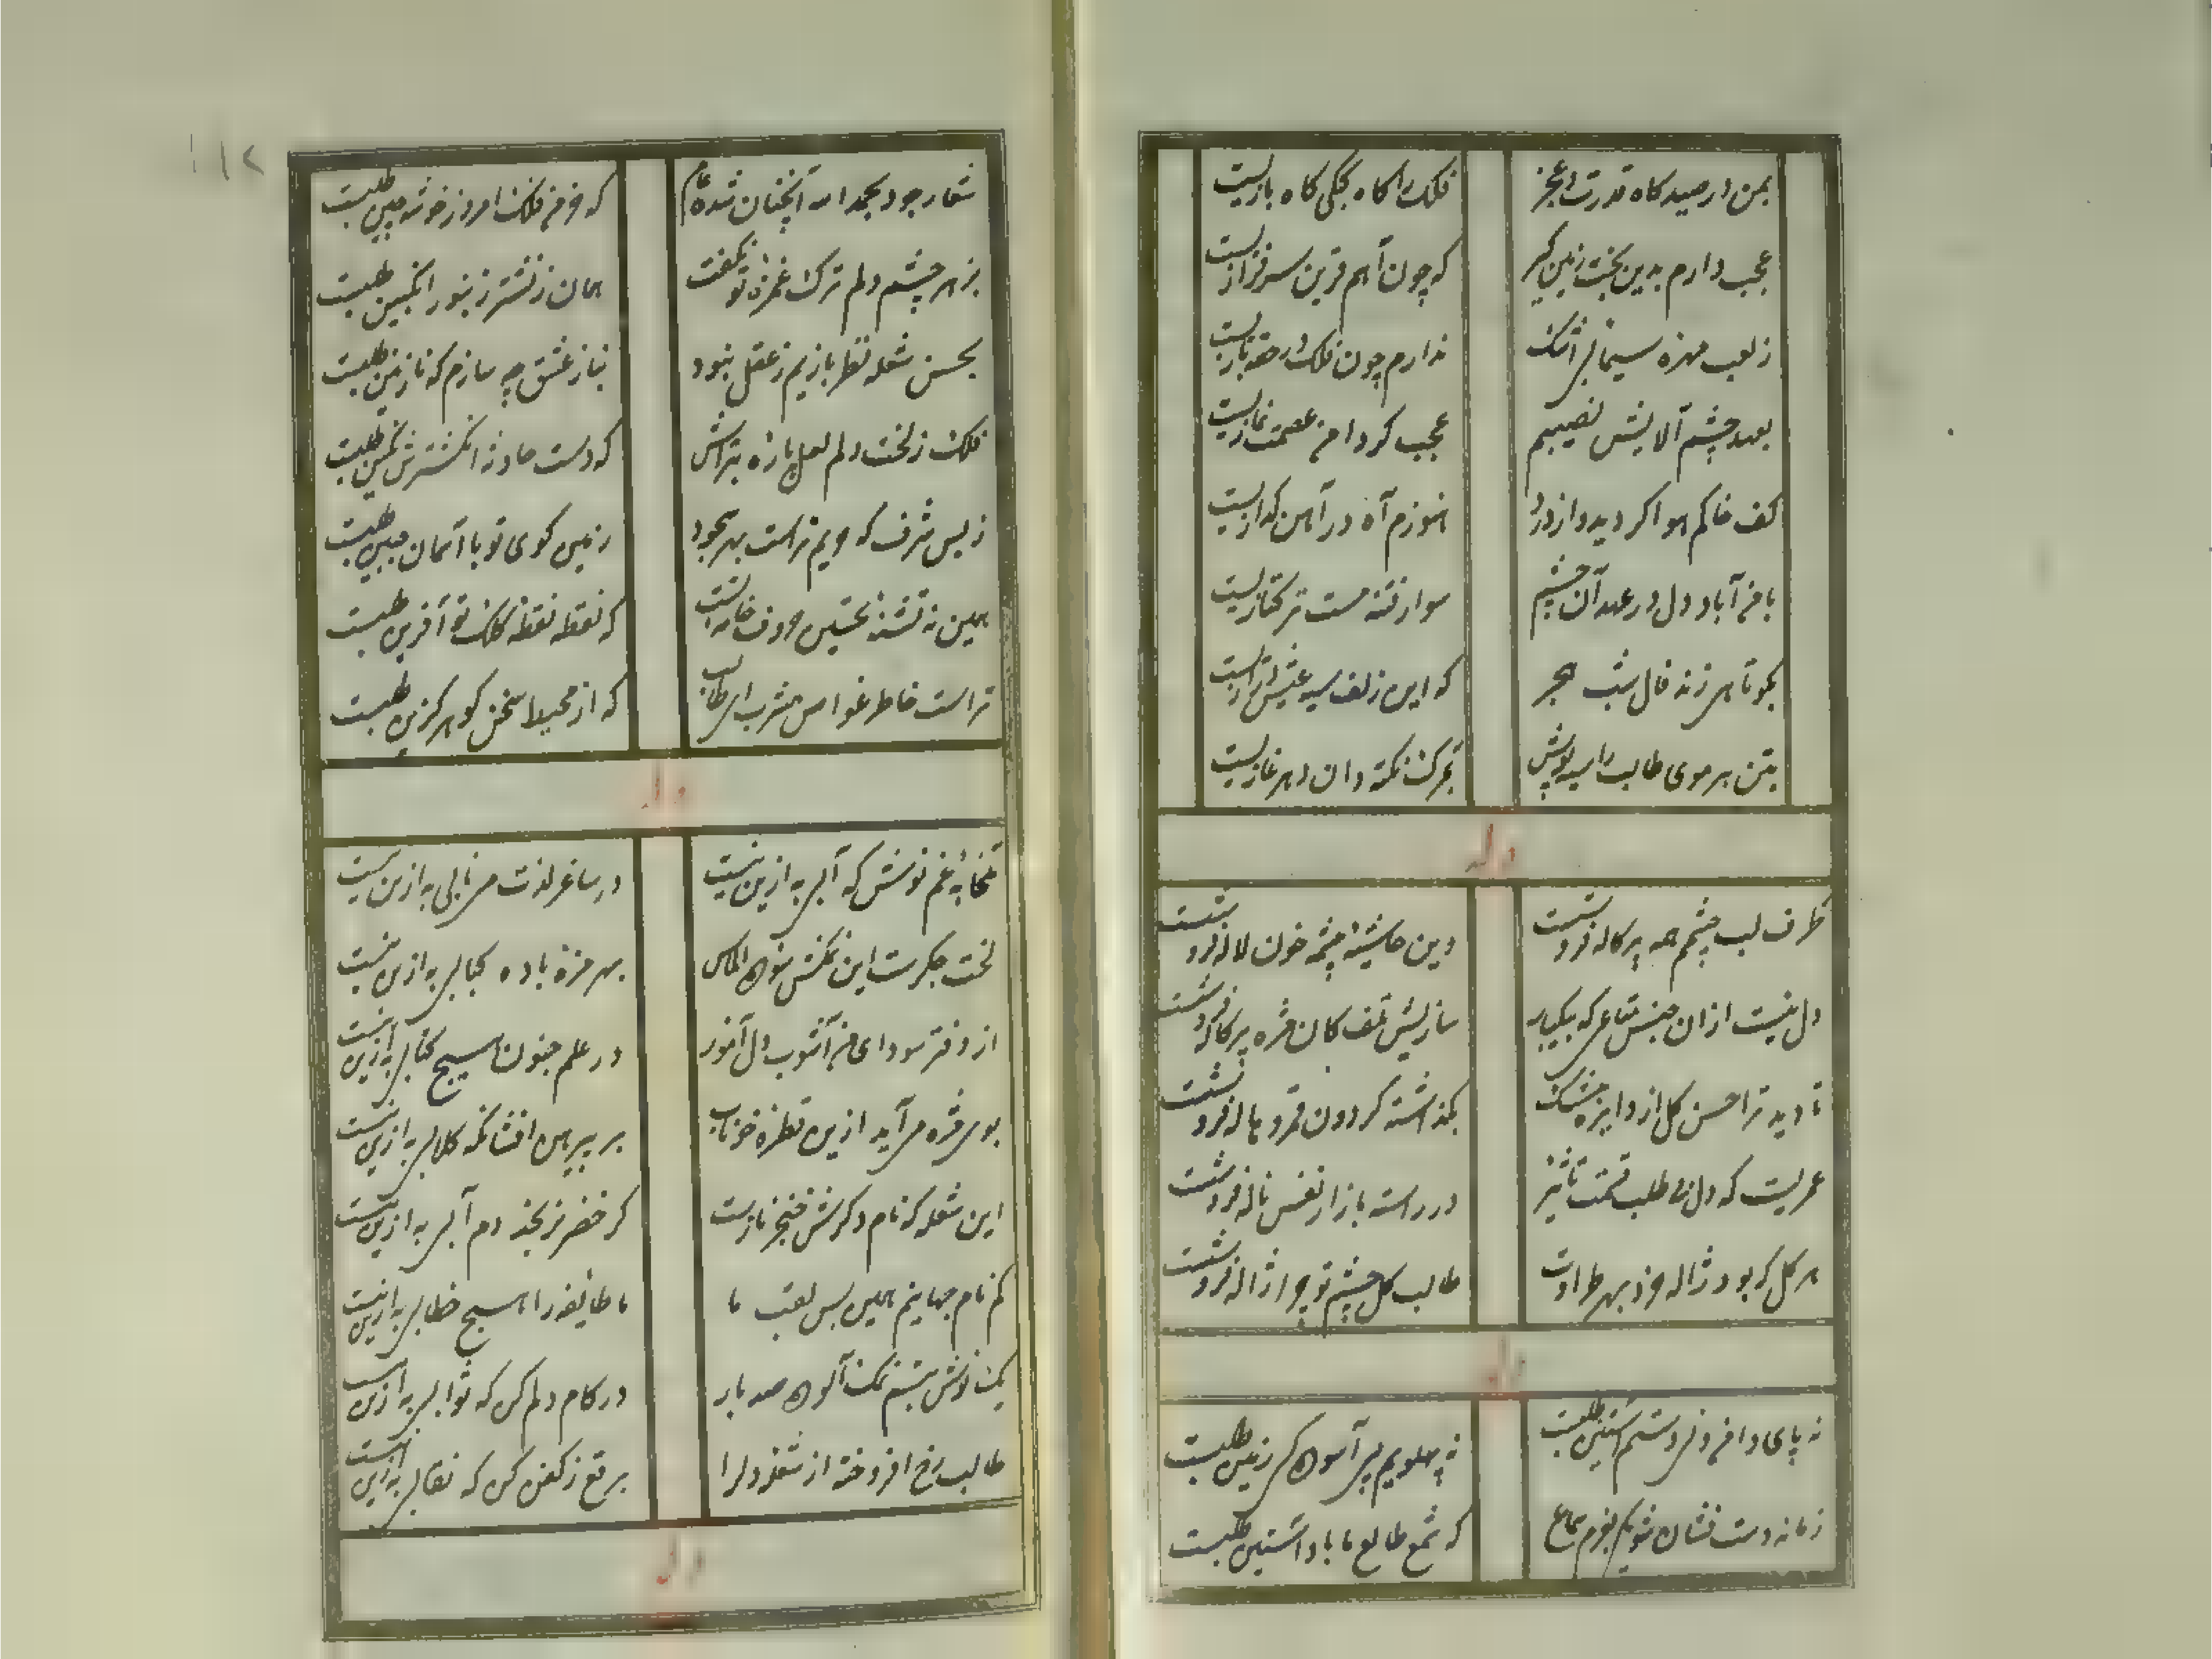 بمن در صیدکاه قدرت عجز
فلک را کاه کبکی کاه بازیست
عجب دارم بدین بخت زمین کیر
که چون آهم قرین سرفرازیست
ز لعب مهره سیمابی اشک
ندارم چون فلک در حقه بازیست
بعهد چشم آلایش نصیبم
عجب کر دامن عصمت نمازیست
کف خاکم هوا کردید و از درد
هنوزم آه در آهن کدازیست
باقن آباد دل در عهد آن چشم
سوار فتنه مست ترکتازیست
بکو تا هر زند فال شب هجر
که این زلف سیه
بتن هر موی طالب را سیه پوش
بمرک نکته دان دهر غازیست
وله
طرف لب چشمم همه پرکاله فروشست
وین حاشیهٔ چشمه خون لاله فروشست
دل نیست ازان جنس متاعی که بیکبار
سازیش تلف کان مژه پرکاله فروشست
تا دید ترا حسن کل از دایره مشک
بکذاشته کردون قمر و هاله فروشست
عمریست که دل طلب قیمت تاثیر
در راسته بازار نفس ناله فروشست
هر کل که بود ژاله خرد بهر طراوت
طالب کل چشم تو چرا ژاله فروشست
وله
نه پای دامن و نی دستم آستین طلبست
نه پهلویم پی آسودکی زمین طلبست
زمانه دست فشان شویم ببزم سماع
که شمع طالع ما باد آستین طلبست
شعار جود بحمد الله آنچنان شده عام
که خرمن فلک امروز خوشه چین طلبست
بزهر چشم دلم ترک غمزهٔ تو نکفت
همان ز نشتر زنبور انکبین طلبست
بحسن شعله نظر بازیم ز عقل نبود
نیاز عشق چه سازم که نازنین طلبست
فلک ز لخت دلم لعل پاره بتراش
که دست حادثه انکشترش نکین طلبست
ز بس شرف که حریم تراست بهر سجود
زمین کوی تو با آسمان جبین طلبست
همین نه تشنهٔ تحسین حروف خامه تست
که نقطه نقطه کلک تو آفرین طلبست
تراست خاطر غواص مشرب ای طالب
که از محیط سخن کوهر کزین طلبست
وله
تلخابهٔ غم نوش که آبی به ازین نیست
در ساغر لذت می نابی به ازین نیست
لخت جکرست این نمکش سودهٔ الماس
بهر مزهٔ باده کبابی به ازین نیست
از دفتر سودای من آشوب دل آموز
در علم جنون هیچ کتابی به ازین نیست
بوی مژه می آید ازین قطرهٔ خوناب
بر پیرهن افشان که کلابی به ازین نیست
این شعله که نام دکرش خنجر نازست
کر خضر نریخد دم آبی به ازین نیست
کم نام جهانیم همین بس لقب ما
ما طایفه را هیچ خطابی به ازین نیست
یک نوش تبسم نمک آلودهٔ صد بار
در کام دلم کن که ثوابی به ازین نیست
طالب رخ افروخته از شعله دلرا
برقع ز کفن کن که نقابی به ازین نیست
وله
۱۱۲